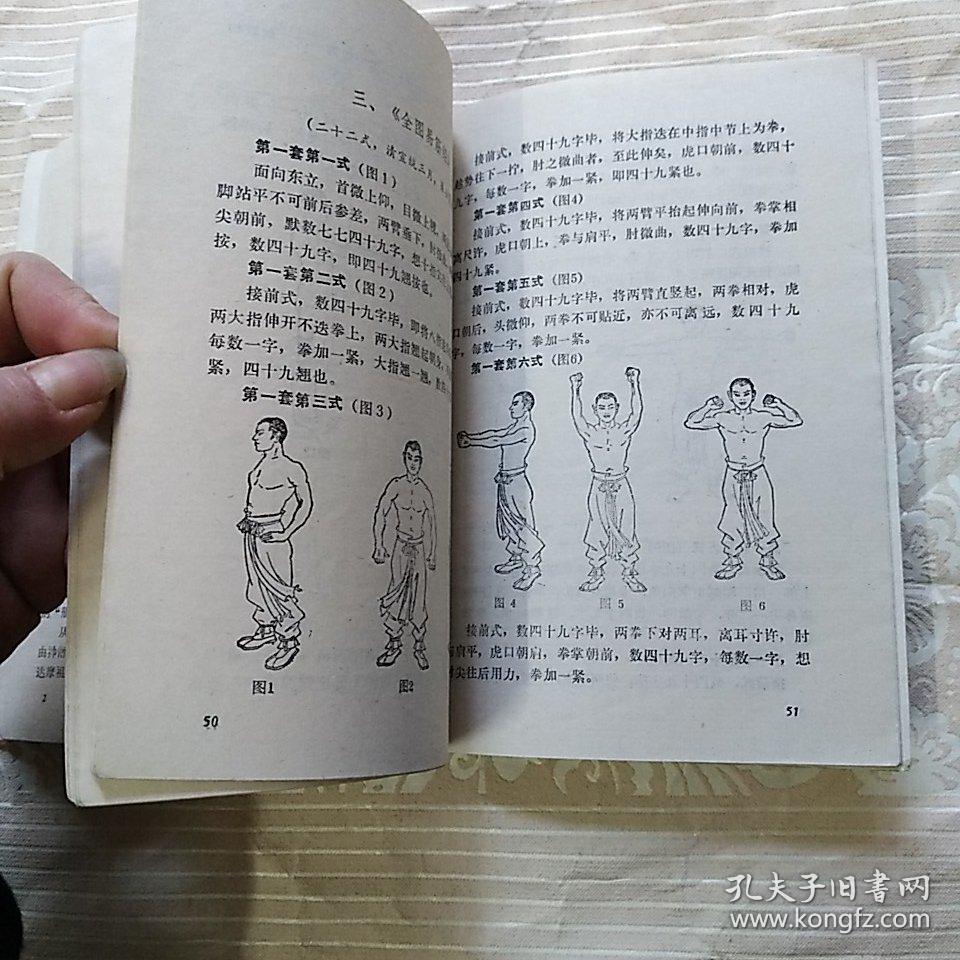 三、《全图易筋
(二十二式,清宣统三月,
第一套第一式(图1)
面向东立,首微上仰,目微上视,
脚站平不可前后参差,两臂垂下,肘微
尖朝前,默数七七四十九字,想十指尖
按,数四十九字,即四十九翘按也。
第一套第二式(图2)
接前式,数四十九字毕,即将八指
两大指伸开不迭拳上,两大指翘起朝身,
每数一字,拳加一紧,大指翘一翘,数四
紧,四十九翘也。
第一套第三式(图3)
图1
图2
50
接前式,数四十九字毕,将大指迭在中指中节上为拳,
趁势往下一拧,肘之微曲者,至此伸矣,虎口朝前,数四十
九字,每数一字,拳加一紧,即四十九紧也。
第一套第四式(图4)
接前式,数四十九字毕,将两臂平抬起伸向前,拳掌相
离尺许,虎口朝上,拳与肩平,肘微曲,数四十九字,拳加
四十九紧。
第一套第五式(图5)
接前式,数四十九字毕,将两臂直竖起,两拳相对,虎
口朝后,头微仰,两拳不可贴近,亦不可离远,数四十九
字,每数一字,拳加一紧。
第一套第六式(图6)
图4
图5
图6
接前式,数四十九字毕,两拳下对两耳,离耳寸许,肘
与肩平,虎口朝肩,拳掌朝前,数四十九字,每数一字,想
肘尖往后用力,拳加一紧。
51
从
达摩祖
2
孔夫子旧书网
www.kongfz.com